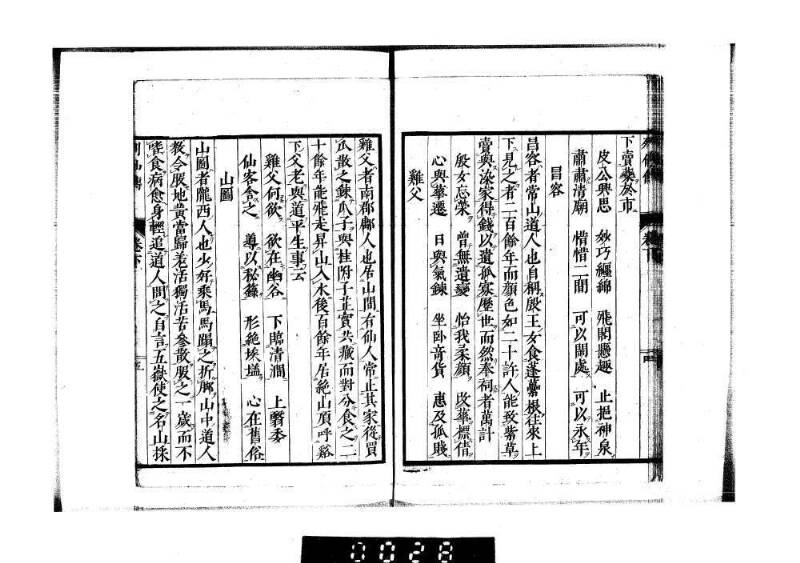 下賣藥於市
皮公興思 妙巧纏綿 飛閣懸趣 上挹神泉
肅肅清廟 愔愔二間 可以閑處 可以永年
昌容
昌容者常山道人也自稱殷王女食蓬虆根往來上
下見之者二百餘年而顏色如二十許人能致紫草
賣與染家得錢以遺孤寡歷世而然奉祠者萬計
殷女忘榮 曾無遺變 怡我柔顏 改華標蒨
心與氣遷 日與氣鍊 坐卧奇貨 惠及孤賤
谿父
谿父者南郡鄘人也居山間有仙人常止其家從買
瓜教之鍊瓜子與桂附子芷實共藏而對分食之二
十餘年能飛走昇山入水後百餘年居絶山頂呼谿
下父老與道平生事云
谿父何欲 欲在幽谷 下臨清澗 上翳委
仙客舍之 導以秘籙 形絶埃壒 心在舊俗
山圖
山圖者隴西人也少好乘馬馬蹋之折脚山中道人
教令服地黄當歸羌活獨活苦參散服之一歲而不
嗜食病愈身輕追道人問之自言五嶽使之名山採
列仙傳
卷下
五
0028